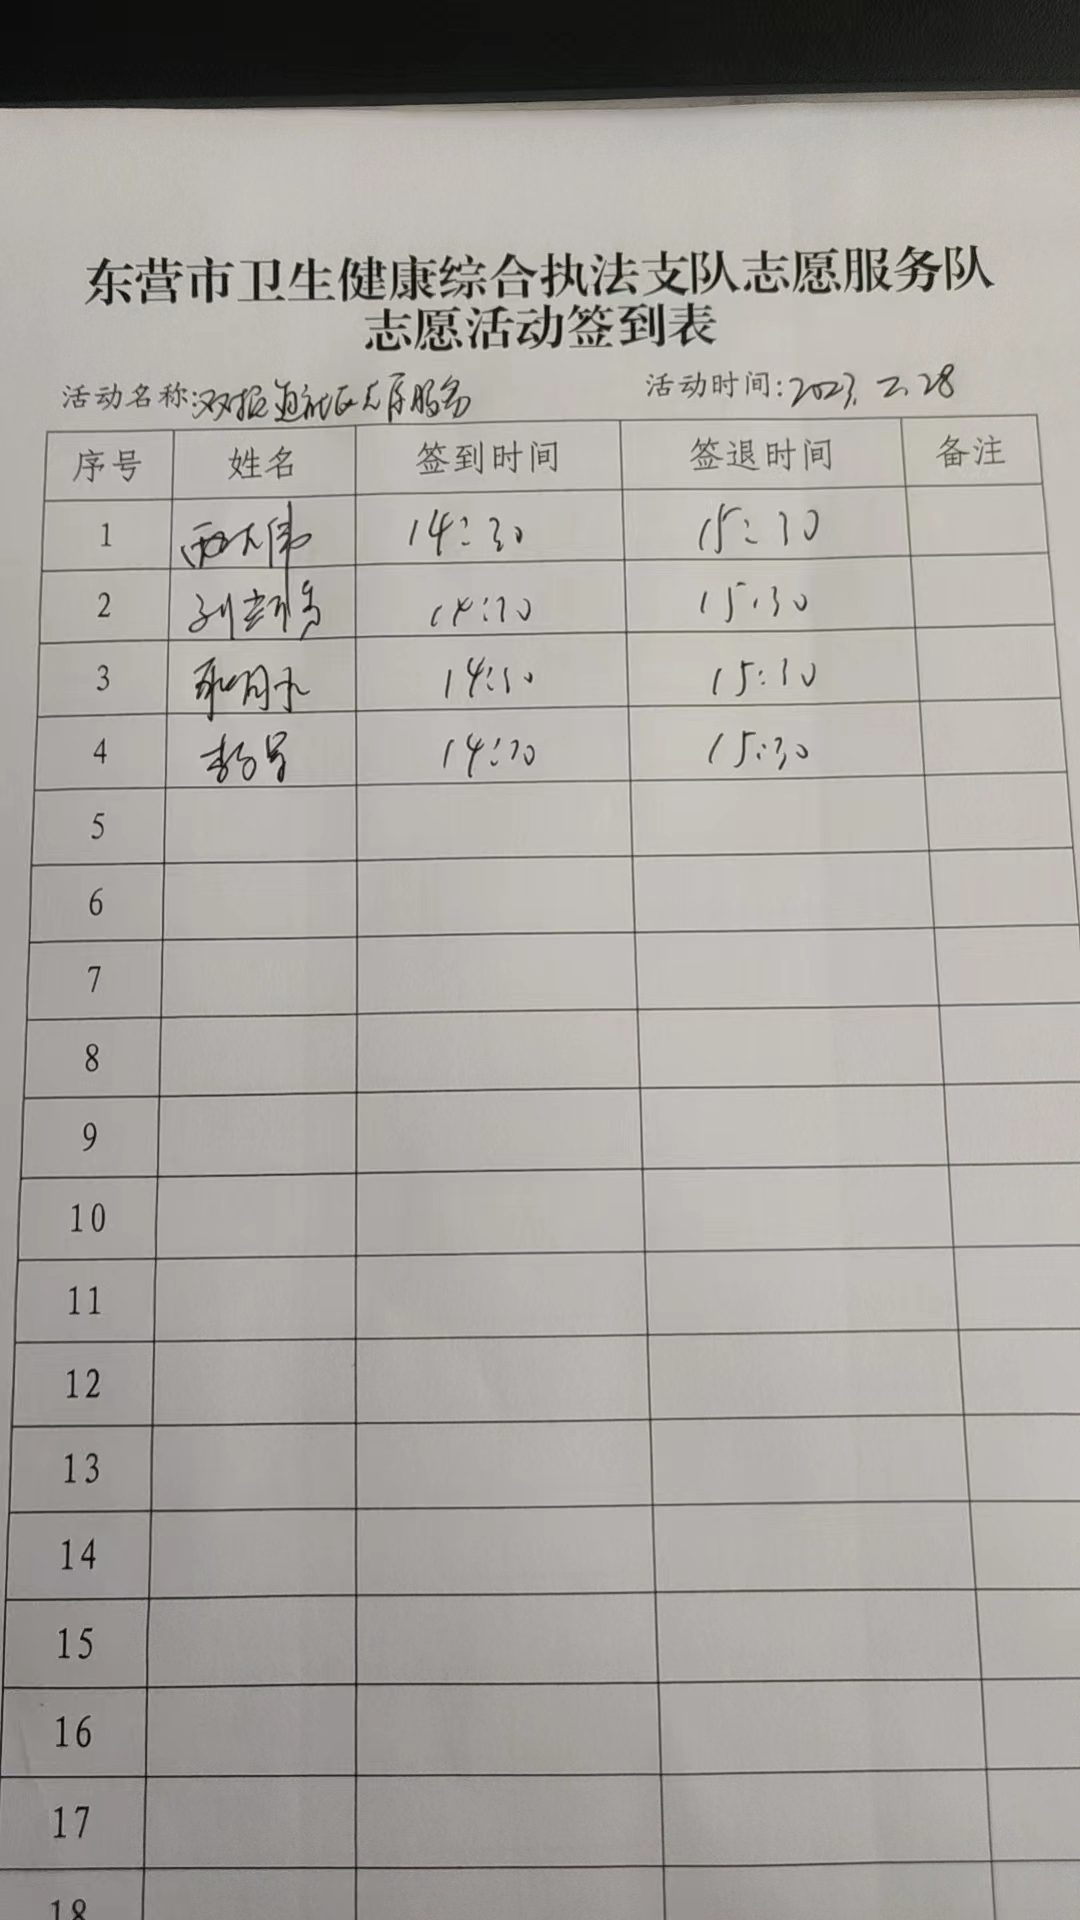 东营市卫生健康综合执法支队志愿服务队
志愿活动签到表
活动名称:双报到进社区志愿服务 活动时间:2023.2.28
序号 姓名 签到时间 签退时间 备注
1 14:30 15:30
2 14:30 15:30
3 14:30 15:30
4 14:30 15:30
5
6
7
8
9
10
11
12
13
14
15
16
17
18